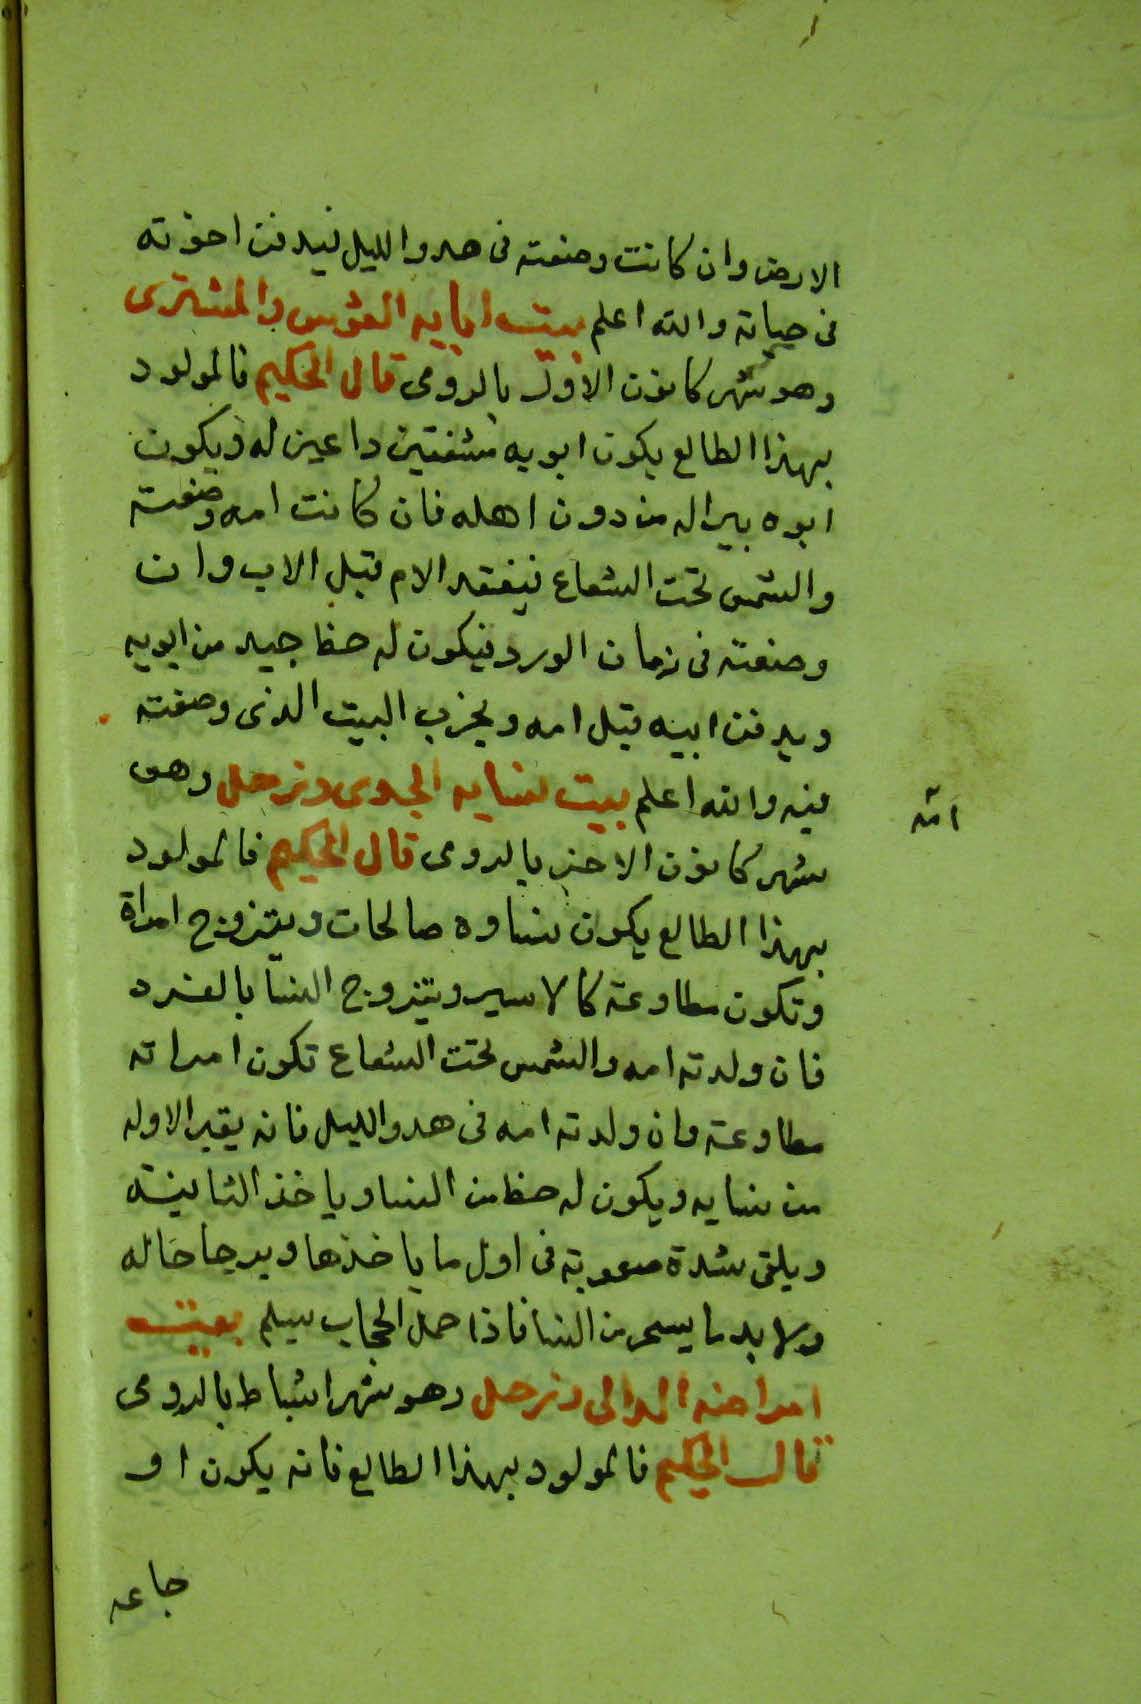 الارض وان كانت وضعته فى هدو الليل فيدفن اخوته
فى حياته والله اعلم بيت ابايه القوس والمشترى
وهو شهر كانون الاول بالرومى قال الحكيم فالمولود
بهذا الطالع يكون ابويه مشفقين داعين له ويكون
ابوه بيراله من دون اهله فان كانت امه وضعته
والشمس تحت الشعاع فيفقد الام قبل الاب وان
وضعته فى زمان الورد فيكون له حظا جيد من ابويه
ويدفن ابيه قبل امه ويخرب البيت الذى وضعته
امه
فيه والله اعلم بيت نسايه الجدى وزحل وهو
شهر كانون الاخير بالرومى قال الحكيم فالمولود
بهذا الطالع يكون نساوه صالحات ويتزوج امراة
وتكون مطاوعته كالاسير ويتزوج النسا بالفرد
فان ولدته امه والشمس تحت الشعاع تكون امراته
مطاوعته وان ولدته امه فى هدو الليل فانه يقبر الاوله
من نسايه ويكون له حظ من النسا وياخذ الثانية
ويلقى شدة صعوبة فى اول ما ياخذها ويرجا حاله
ولا بد ما يسحر من النسا فاذا حمل الحجاب سيلم بيت
امراضه الدالى وزحل وهو شهر اشباط بالرومى
قال الحكيم فالمولود بهذا الطالع فانه يكون او
جاعه